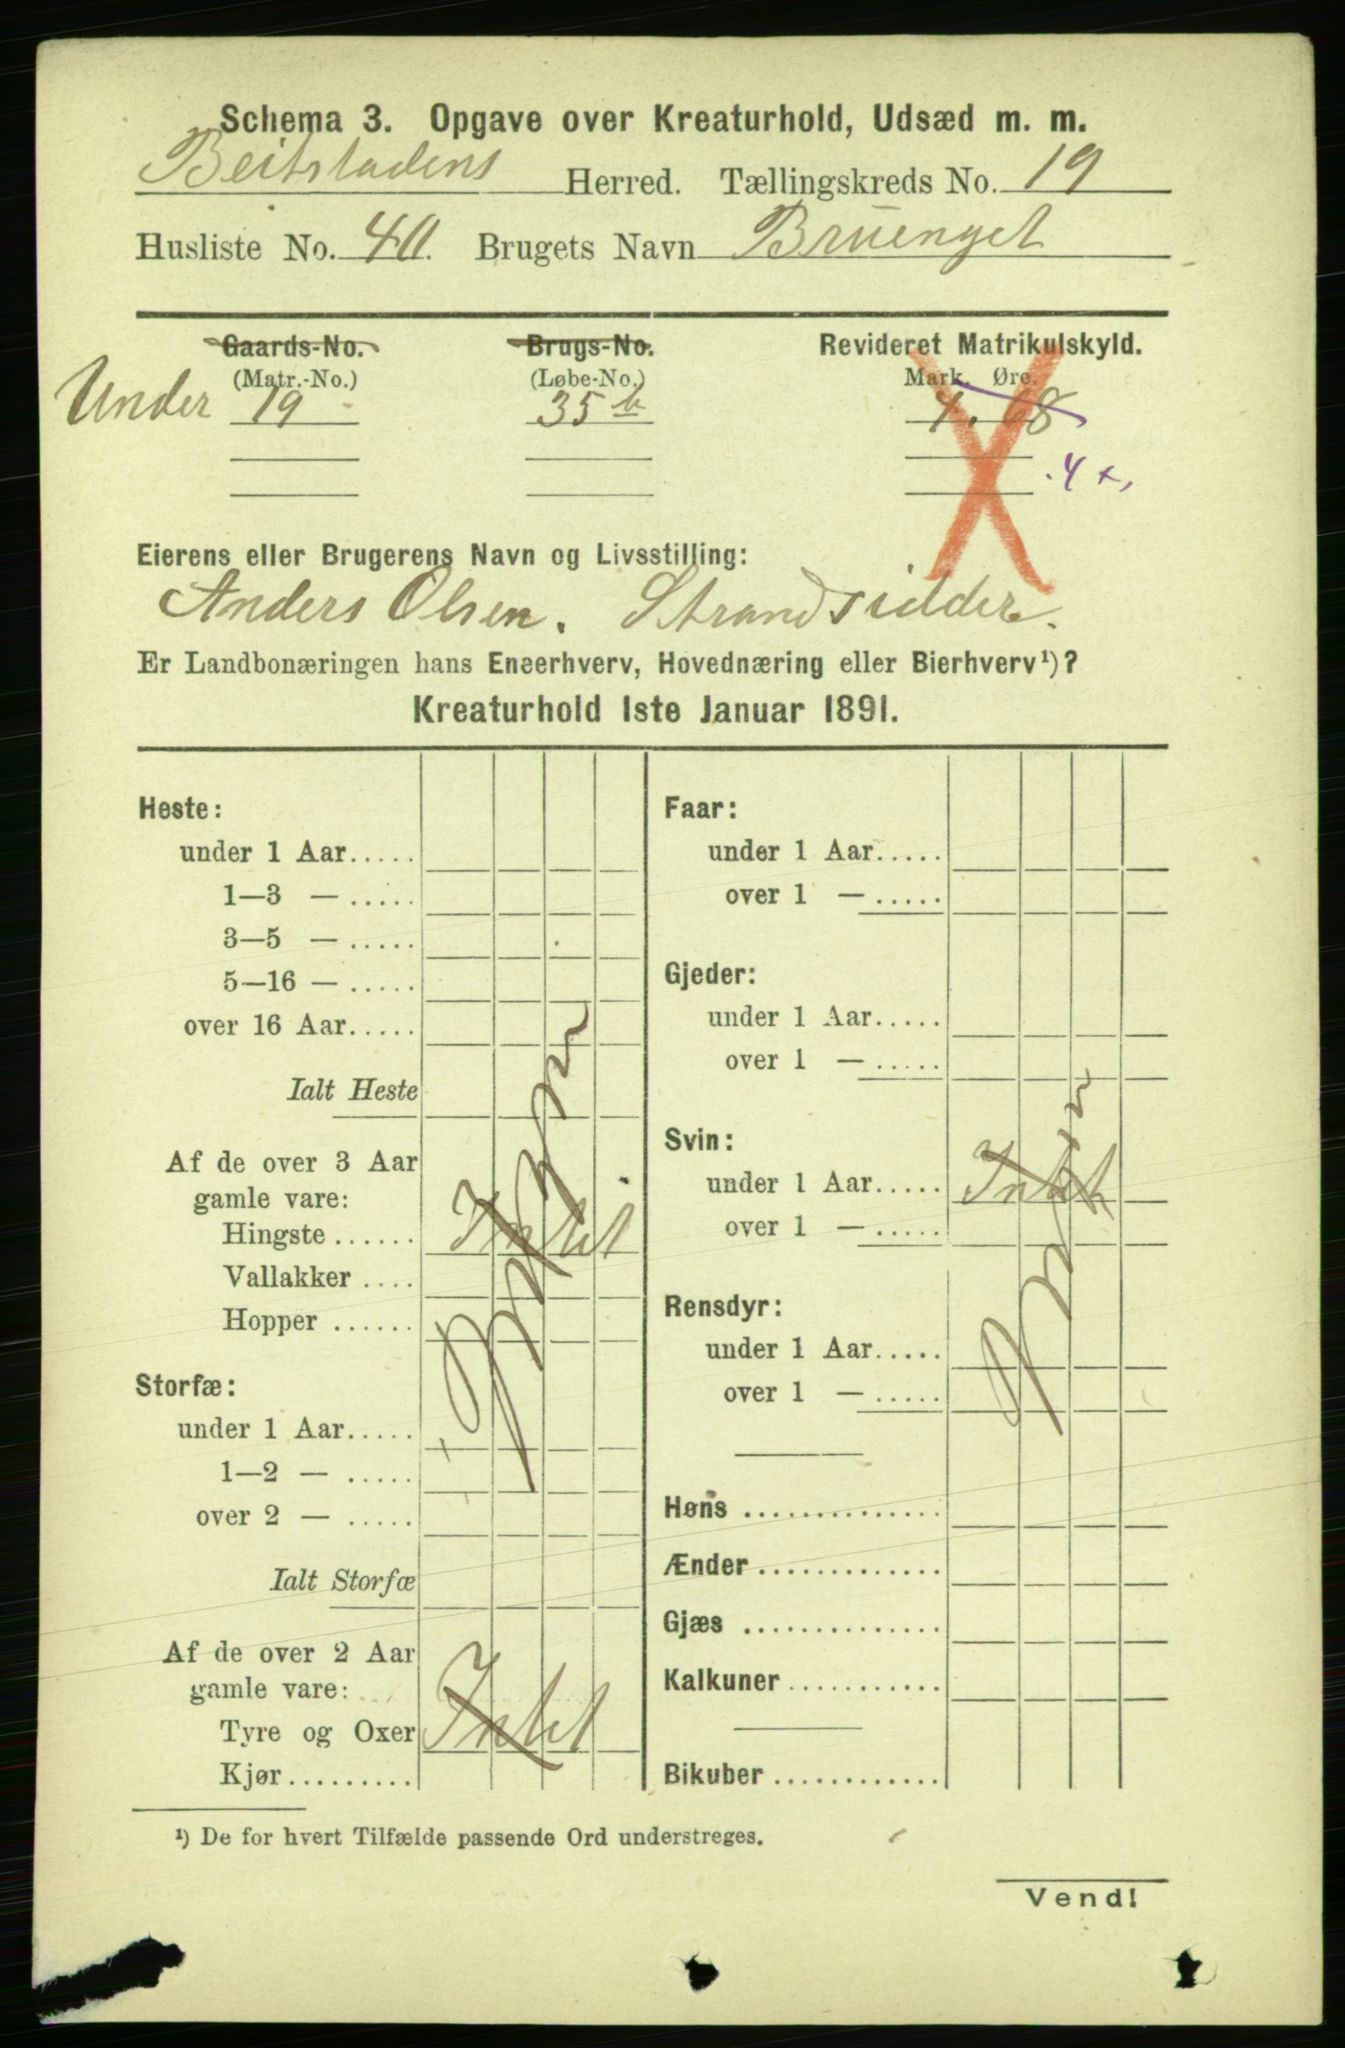 Schema 3. Opgave over Kreaturhold, Udsæd m. m.
Beitstadens Herred. Tællingskreds No. 19
Husliste No. 40. Brugets Navn Bruenget
Gaards-No. Brugs-No. Revideret Matrikulskyld.
(Matr.-No.) (Løbe-No.) Mark. Øre.
Under 19 35 b 4.08
.4 x,
Eierens eller Brugerens Navn og Livsstilling:
Anders Olsen. Strandsidder.
Er Landbonæringen hans Eneerhverv, Hovednæring eller Bierhverv¹)?
Kreaturhold 1ste Januar 1891.
Heste:
under 1 Aar.....
1—3 — .....
3—5 — .....
5—16 — .....
over 16 Aar.....
Ialt Heste
Af de over 3 Aar
gamle vare:
Hingste ...... Intet
Vallakker ....
Hopper ......
Storfæ:
under 1 Aar.....
1—2 — .....
over 2 — .....
Ialt Storfæ
Af de over 2 Aar
gamle vare:
Tyre og Oxer Intet
Kjør.........
Faar:
under 1 Aar.....
over 1 — .....
Gjeder:
under 1 Aar.....
over 1 — .....
Svin:
under 1 Aar..... Intet
over 1 — .....
Rensdyr:
under 1 Aar.....
over 1 — .....
Høns ..............
Ænder .............
Gjæs ..............
Kalkuner ...........
Bikuber ............
¹) De for hvert Tilfælde passende Ord understreges.
Vend!